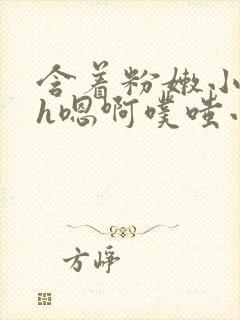 含着粉嫩小
h嗯啊噗嗤小
方峥